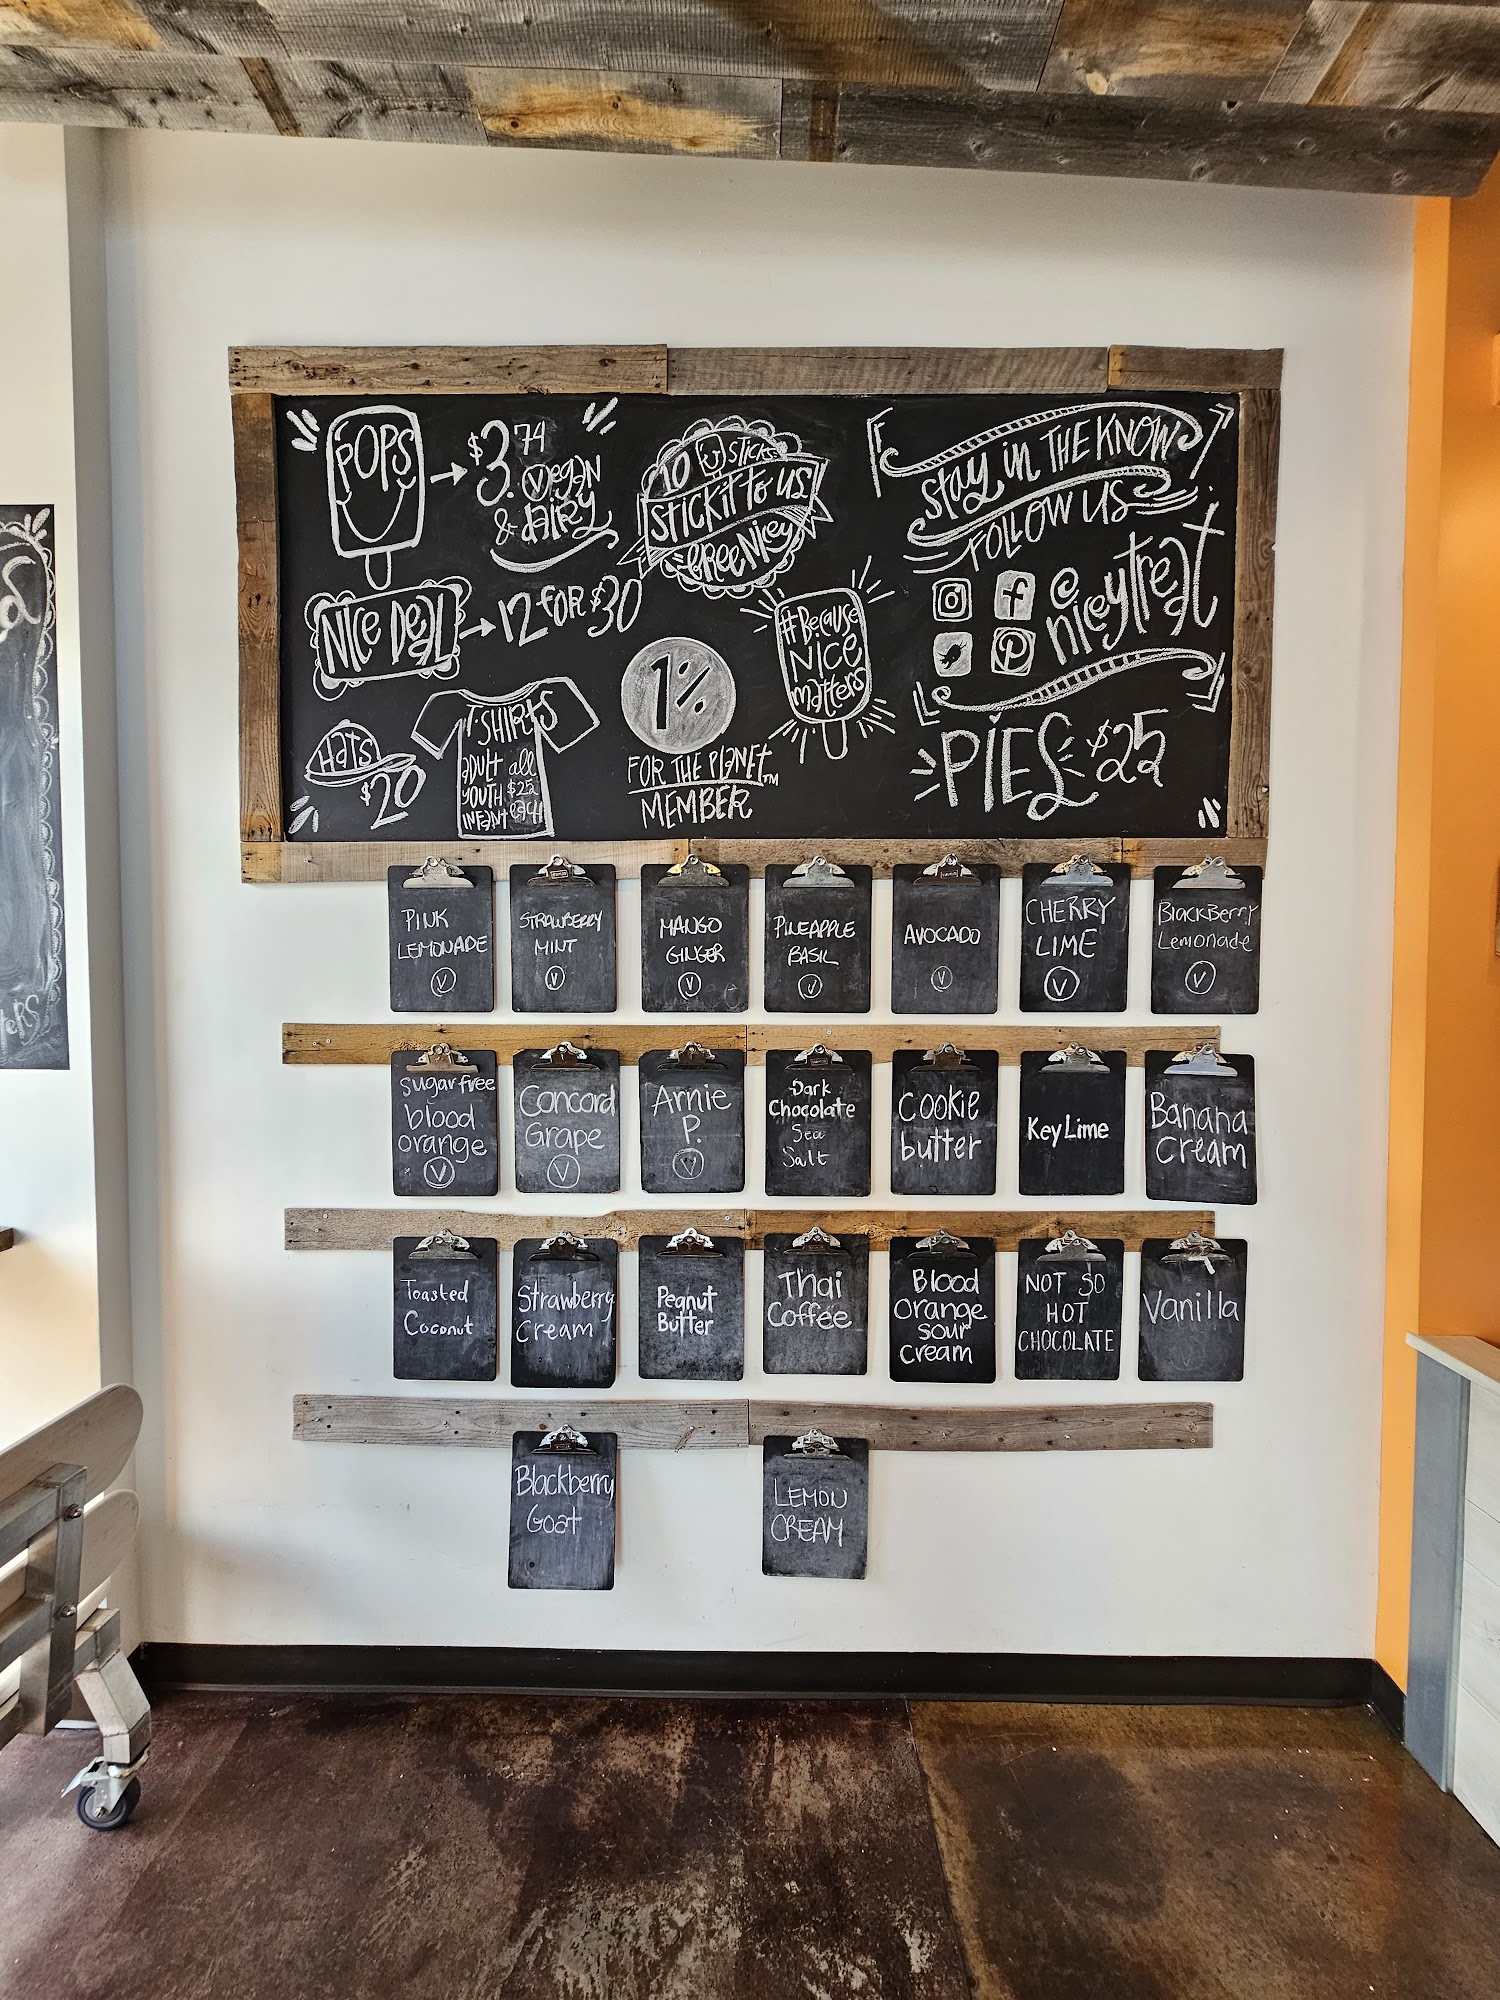 POPS
$3.74
Vegan
& dairy
10 STICKS
STICK it to us!
FREE NICEY
NICE DEAL
12 FOR $30
HATS
$20
T-SHIRTS
ADULT all
YOUTH $25
INFANT each
1%
FOR THE PLANET™
MEMBER
#Because
NICE
matters
Stay in THE KNOW
FOLLOW US
@
niceytreat
PIES $25
PINK
LEMONADE
V
STRAWBERRY
MINT
V
MANGO
GINGER
V
PINEAPPLE
BASIL
V
AVOCADO
V
CHERRY
LIME
V
BlackBerry
Lemonade
V
Sugar free
blood
orange
V
Concord
Grape
V
Arnie
P.
V
Dark
Chocolate
Sea
Salt
Cookie
butter
Key Lime
Banana
Cream
Toasted
Coconut
Strawberry
Cream
Peanut
Butter
Thai
Coffee
Blood
Orange
Sour
Cream
NOT SO
HOT
CHOCOLATE
Vanilla
Blackberry
Goat
LEMON
CREAM